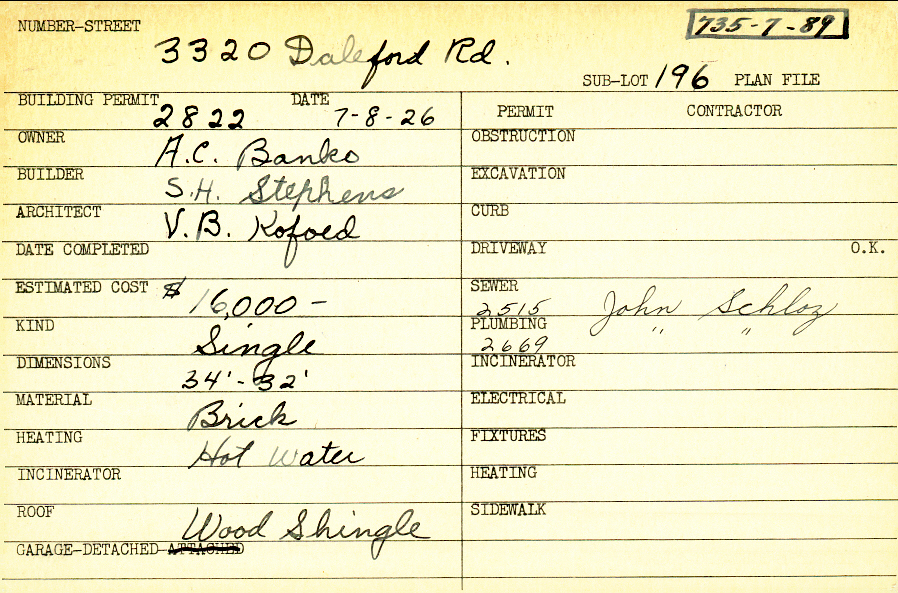 NUMBER-STREET
735-7-89
3320 Daleford Rd.
SUB-LOT 196 PLAN FILE
BUILDING PERMIT 2822 DATE 7-8-26
OWNER A.C. Banko
BUILDER S.H. Stephens
ARCHITECT V.B. Kofoed
DATE COMPLETED
ESTIMATED COST $ 16,000-
KIND Single
DIMENSIONS 34'-32'
MATERIAL Brick
HEATING Hot Water
INCINERATOR
ROOF Wood Shingle
GARAGE-DETACHED-ATTACHED
PERMIT CONTRACTOR
OBSTRUCTION
EXCAVATION
CURB
DRIVEWAY O.K.
SEWER 2515 John Schloz
PLUMBING 2669 " "
INCINERATOR
ELECTRICAL
FIXTURES
HEATING
SIDEWALK